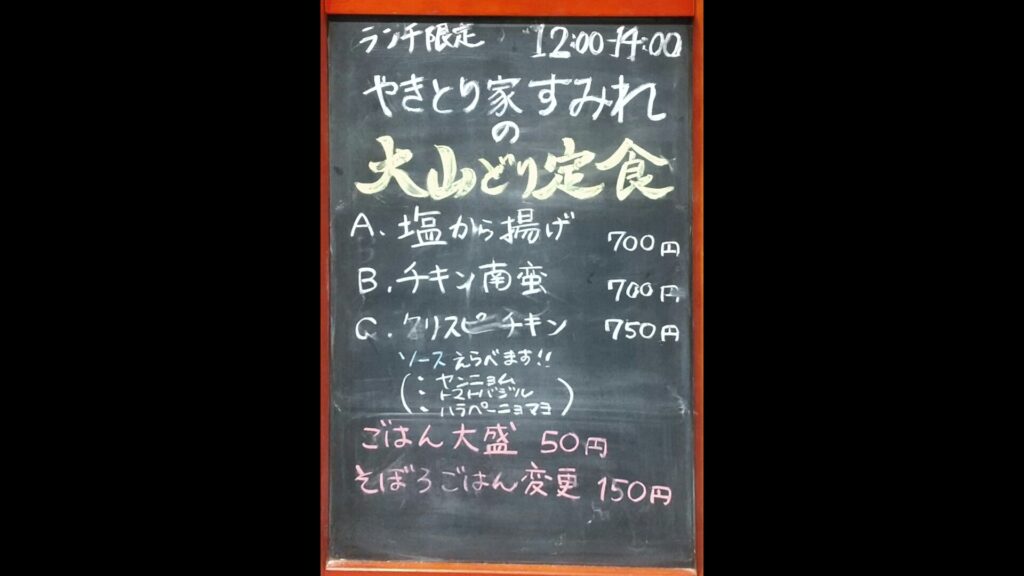 ランチ限定 12:00-14:00
やきとり家すみれ
の
大山どり定食
A. 塩から揚げ 700円
B. チキン南蛮 700円
C. クリスピーチキン 750円
ソースえらべます!!
(・ヤンニョム
・トマトバジル
・ハラペーニョマヨ)
ごはん大盛 50円
そぼろごはん変更 150円